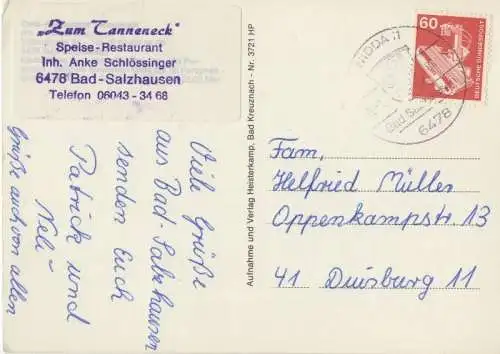 „Zum Tanneneck"
Speise-Restaurant
Inh. Anke Schlössinger
6478 Bad-Salzhausen
Telefon 06043 - 34 68
Viele Grüße
aus Bad-Salzhausen
senden Euch
Patrick und
Neli
Grüße auch von allen
Aufnahme und Verlag Heisterkamp, Bad Kreuznach - Nr. 3721 HP
60
DEUTSCHE BUNDESPOST
NIDDA 11
Bad
6478
Fam,
Helfried Müller
Oppenkampstr. 13
41 Duisburg 11